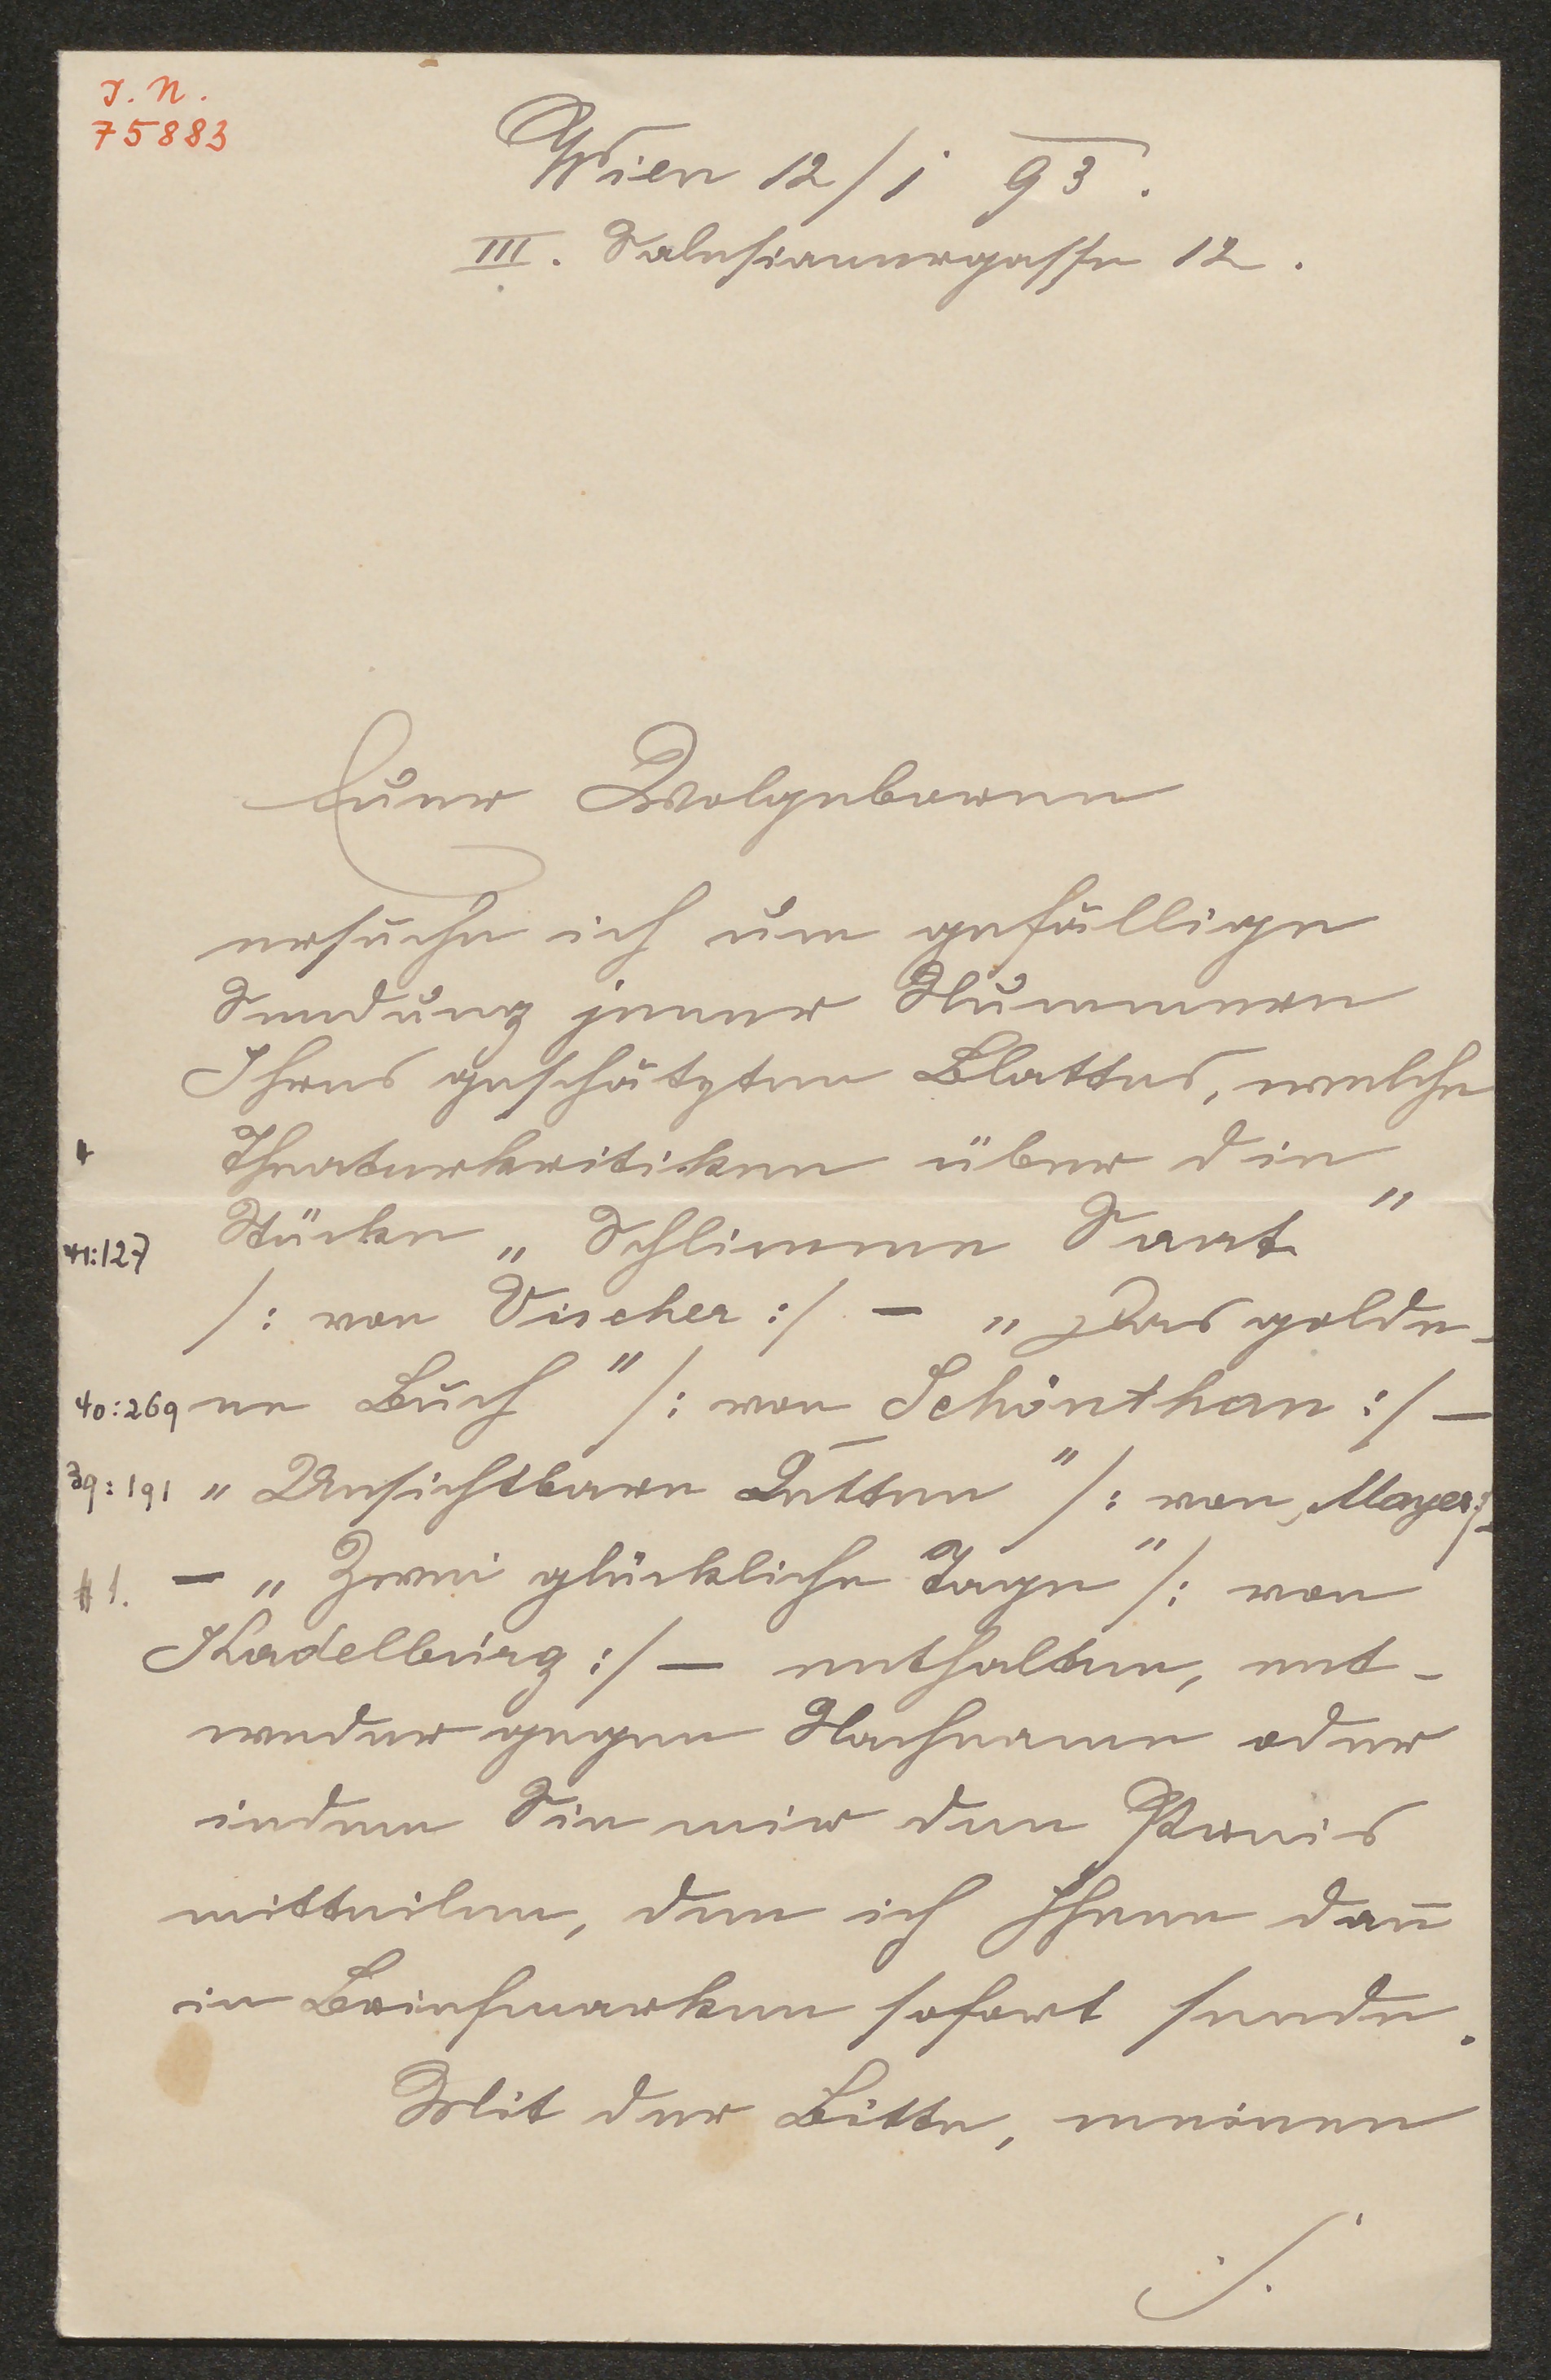 J. N.
75883
Wien 12/1 93.
III. Salesianergasse 12.
Euer Wolgeboren
ersuche ich um gefällige
Sendung jener Nummern
Ihres geschätzten Blattes, welche
Theaterkritiken über die
Stücke „Schlimme Saat"
/: von Vischer :/ – „Das golde-
ne Buch" /: von Schönthan :/ –
„Unsichtbare Ketten" /: von Mayer :/
– „Zwei glückliche Tage" /: von
Kadelburg :/ – enthalten, ent-
weder gegen Nachname oder
indem Sie mir den Preis
mitteilen, den ich Ihnen dan̄
in Briefmarken sofort sende.
Mit der Bitte, meinen
41:127
40:269
39:191